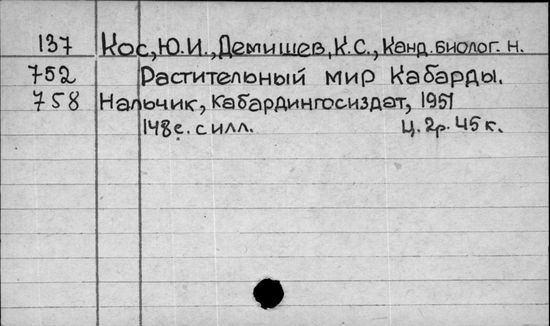 137 Кос, Ю.И., Демишев, К.С., Канд. биолог. н.
752 Растительный мир Кабарды.
758 Нальчик, Кабардингосиздат, 1951
148с. с илл. Ц. 2р. 45к.